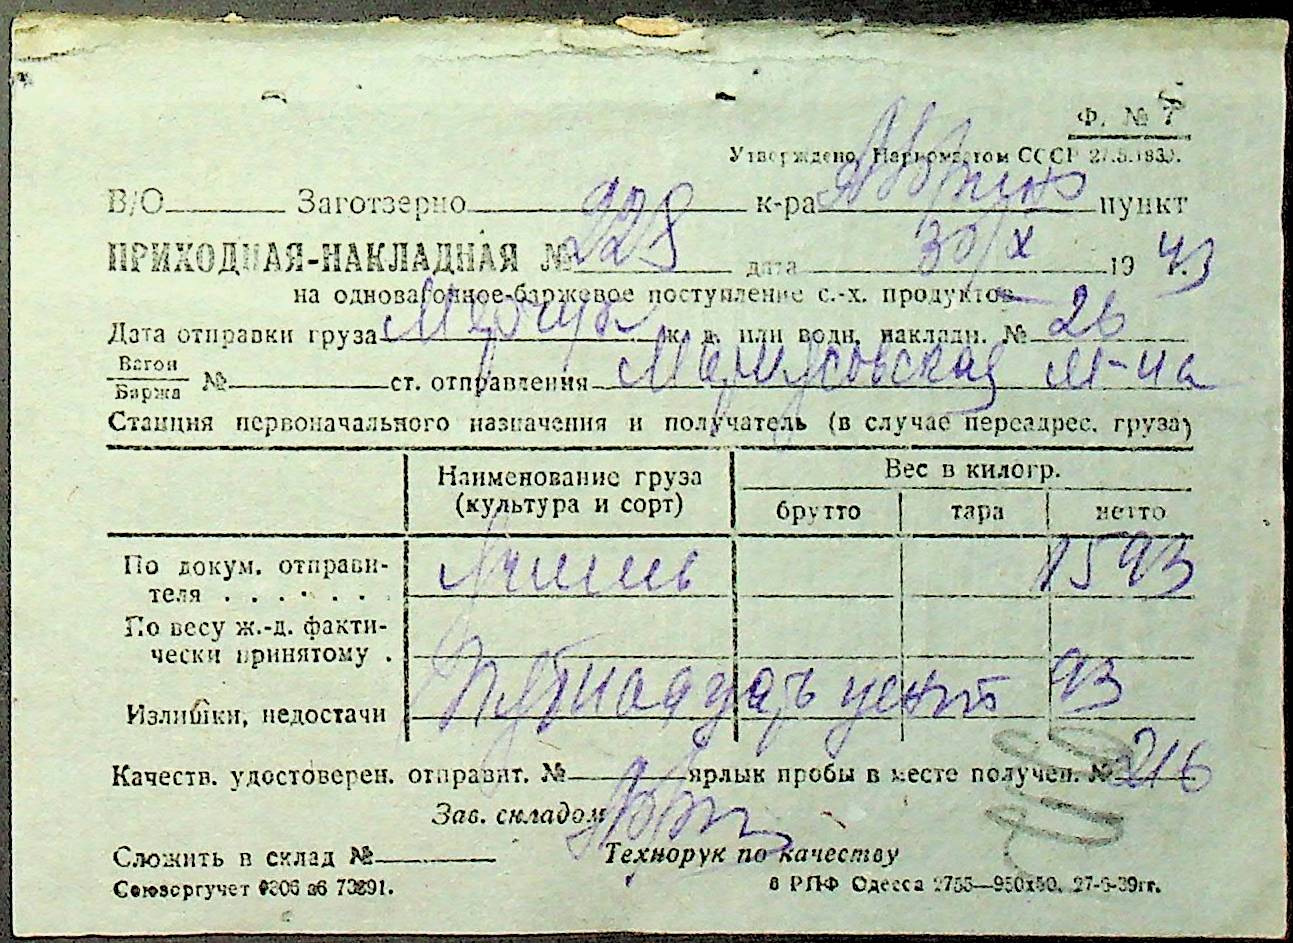 Ф. № 7
Утверждено, Наркоматом СССР 27.5.1839.
В/О Заготзерно к-ра пункт
ПРИХОДНАЯ-НАКЛАДНАЯ № 228 дата 30/X 1943
на одновагонное-баржевое поступление с.-х. продуктов
Дата отправки груза ж. д. или водн. накладн. № 26
Вагон
Баржа № ст. отправления м-на
Станция первоначального назначения и получатель (в случае переадрес. груза)
Наименование груза Вес в килогр.
(культура и сорт) брутто тара нетто
По докум. отправи-
теля . . . . . . . Ячмень 1593
По весу ж.-д. факти-
чески принятому .
Излишки, недостачи Пятнадцать цент 93
Качеств. удостоверен. отправит. № ярлык пробы в месте получен. № 216
Зав. складом
Сложить в склад № Технорук по качеству
Союзоргучет Ф306 аб 73891. 8 РПФ Одесса 2755—950х50. 27-6-39гг.